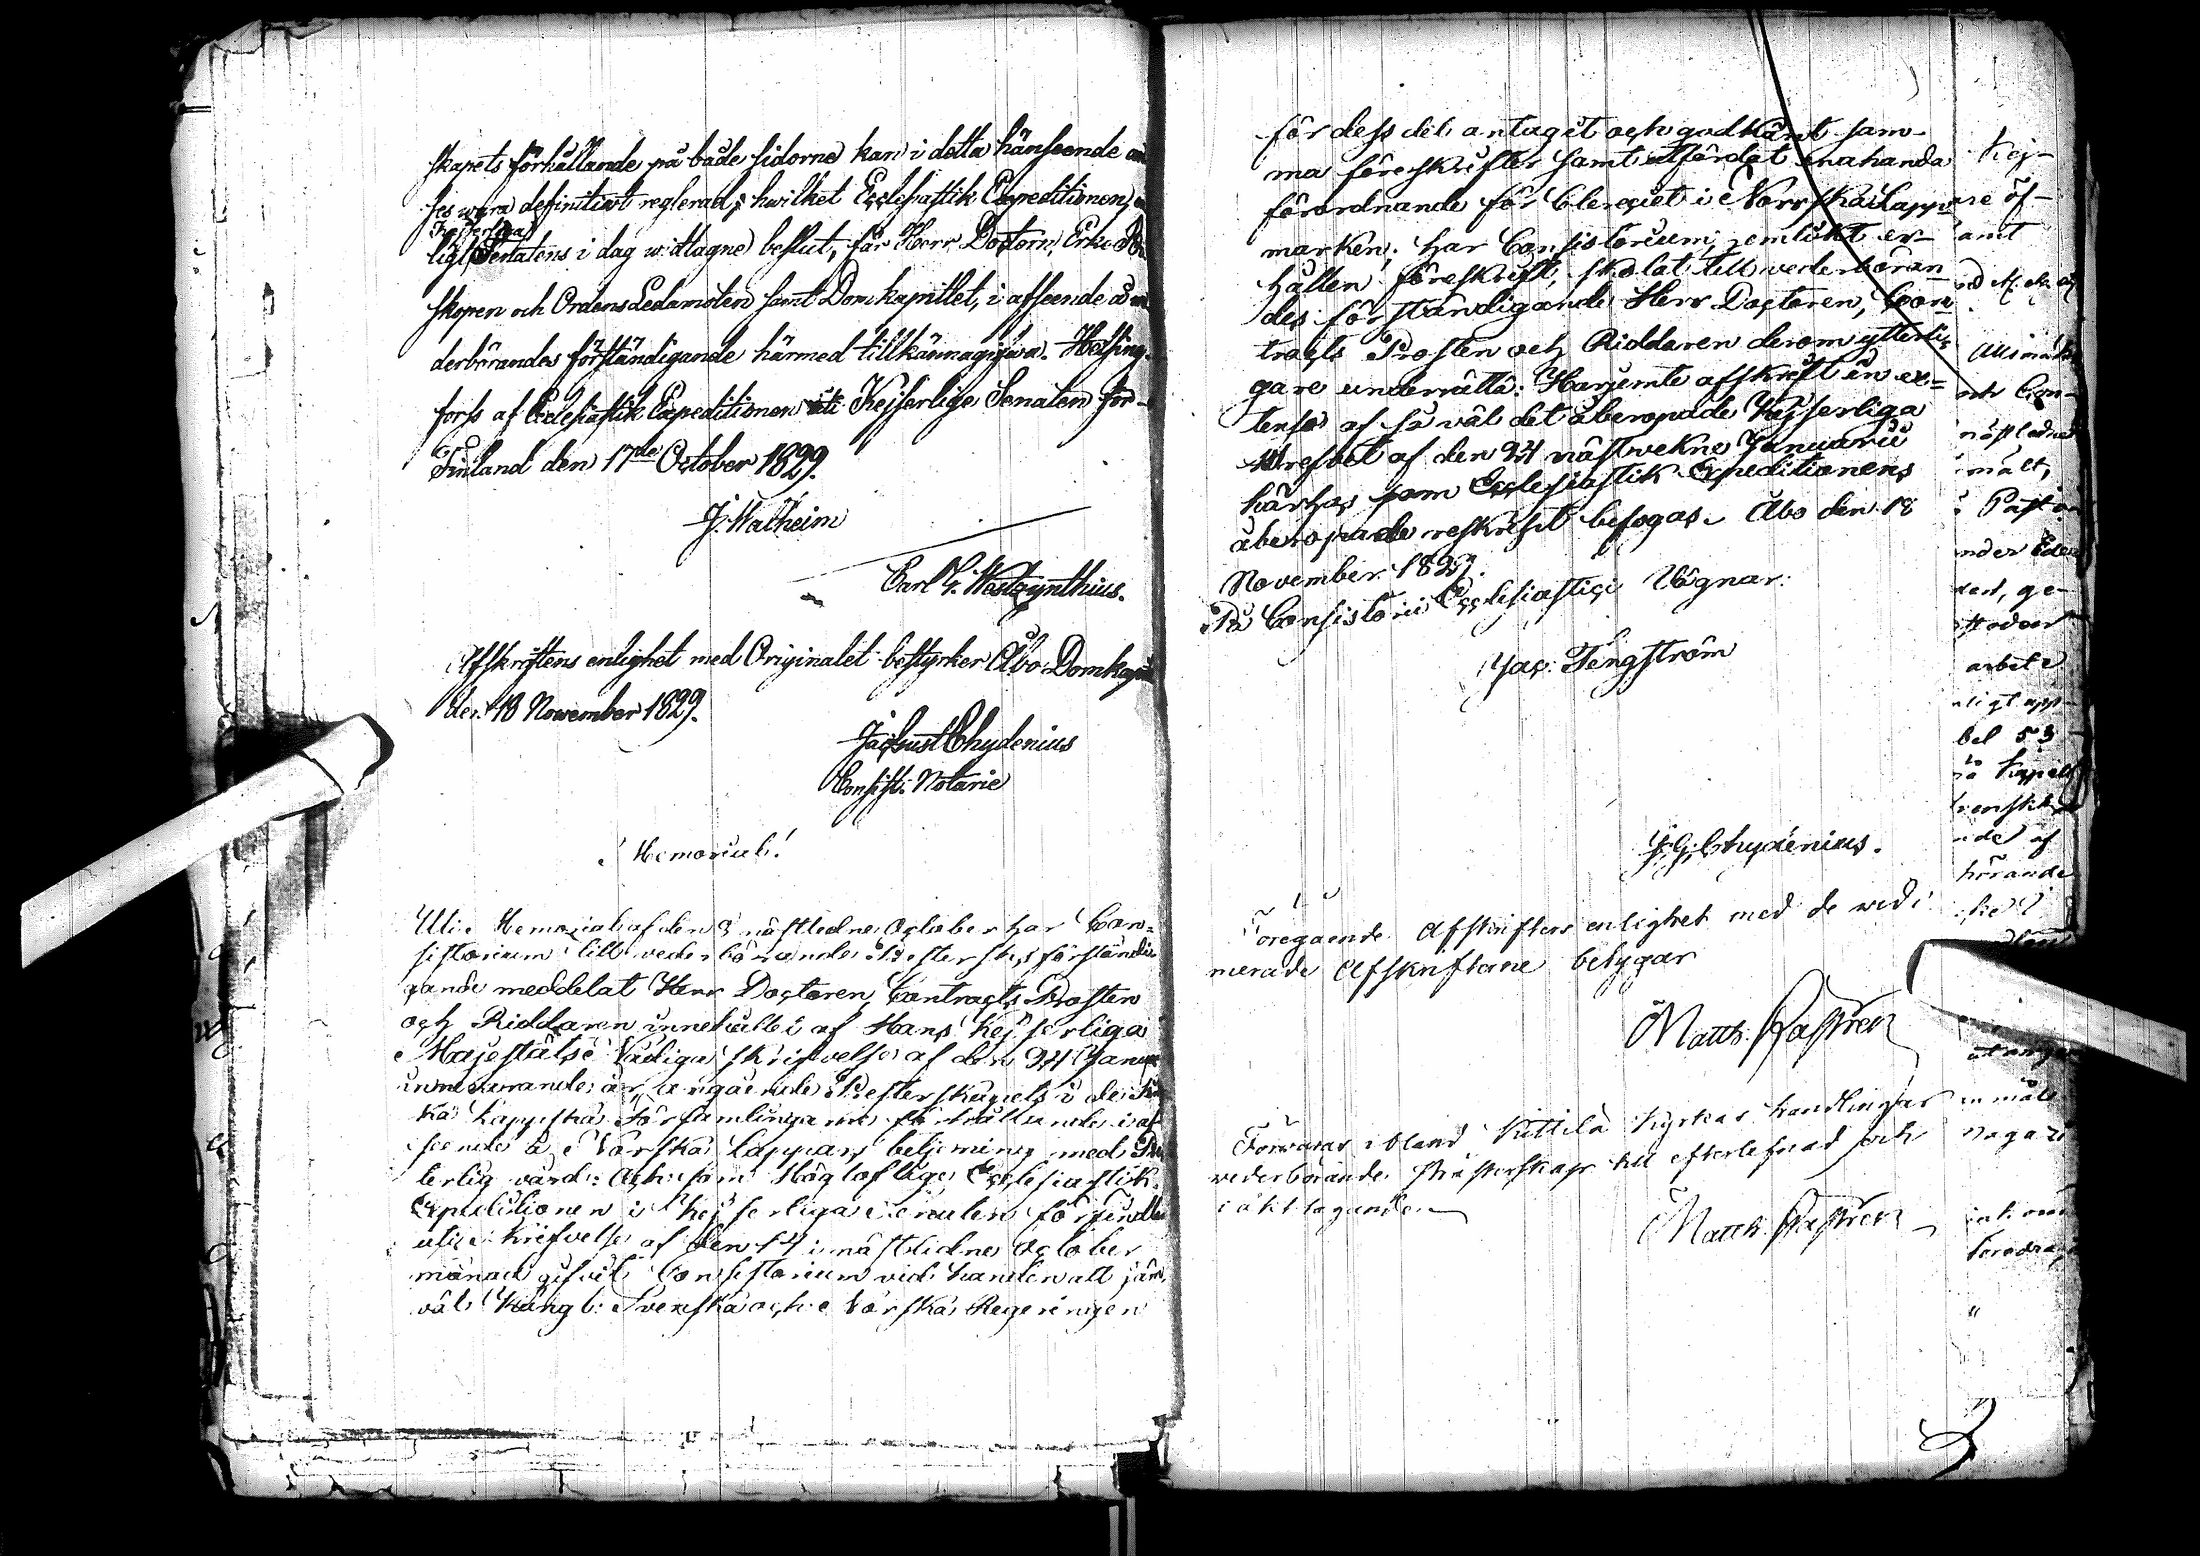 skapets förhållande på både sidorne kan i detta hänseende an
ses wara definitivt reglerad; hwilket Ecclesiastik Expeditionen, en
Kejserliga
ligt Senatens i dag widtagne beslut, får Herr Doctorn, Erke Bi
skopen och Ordens Ledamoten samt Domkapitlet, i afseende å we
derbörandes förständigande härmed tillkännagifwa. Helsing-
fors af Ecclesiastik Expeditionen uti Kejserlige Senaten för
Finland den 17de October 1829.
J. Walheim
Carl G. Westzynthius.
Afskriftens enlighet med Originalet bestyrker Åbo Domkapit
den 18 November 1829.
Jac Gust Chydenius
Consist. Notarie
Memorial!
Uti Memorial af den 3 nästledne October har Con=
sistorium till vederbörandes Presterskaps förständi
gande meddelat Herr Doctoren, Contracts Prosten
och Riddaren innehållet af Hans Kejserliga
Majestäts Nådiga Skrifvelse af den 24 Januarii
innevarande år, angående Presterskapets i de Fin
ska Lappska Församlingarne förhållande i af
seende å Norska Lappars betjening med Pres
terlig vård: Och som Höglofliga Ecclesiastik
Expeditionen i Kejserliga Senaten för Finland
uti skrifvelse af den 17 i nästlidne October
månad gifvit Consistorium vid handen att jäm
väl Kongl: Svenska och Norska Regeringen
för dess del antagit och godkänt sam-
ma föreskrifter samt utfärdat enahanda
förordnande för Clereciet i Norrska Lapp-
marken; har Consistorium, jemlikt er-
hållen föreskrift, skolat till vederböran-
des förständigande Herr Doctoren, Con-
tracts Prosten och Riddaren derom ytterli-
gare underrätta: Hvarjemte afskrift in ex=
tenso af så väl det åberopade Kejserliga
Brefvet af den 24 nästvekne Januarii
härhos som Ecclesiastik Expeditionens
åberopade reskript bifogas. Åbo den 18
November 1829.
På Consistorii Ecclesiastici Vägnar:
Jac: Tengström
J. G. Chydenius.
Föregående Afskrifters enlighet med de vidi-
merade Afskrifterne betygar
Matth. Castrén
Förvaras ibland Kittilä Kyrkas handlingar
vederbörande Prästerskap till efterlefnad och
iakttagande.
Matth. Castrén
Kej-
re öf-
amt
och Con-
nästledne
mält,
Past
nder
den, ge-
arbete
ligt upp-
bel 53
Kapell
venska
del af
hörande
en mål
naga
"